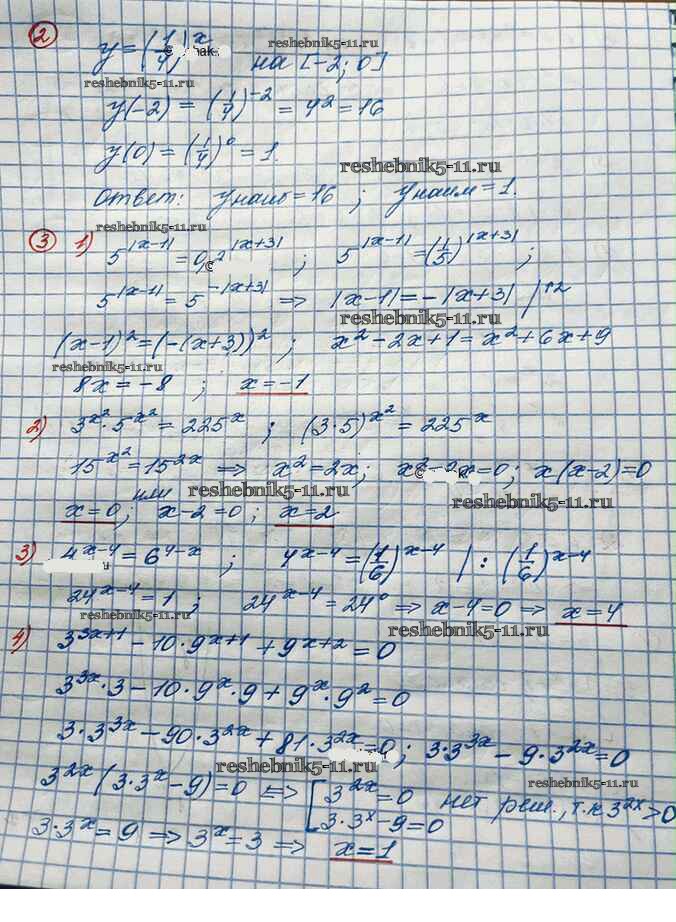 ② y = (1/4)^x на [-2; 0]
reshebnik5-11.ru
reshebnik5-11.ru
y(-2) = (1/4)^-2 = 4^2 = 16
y(0) = (1/4)^0 = 1.
reshebnik5-11.ru
ответ: y наиб = 16 ; y наим = 1.
reshebnik5-11.ru
③ 1) 5^|x-1| = 0,2^|x+3| ; 5^|x-1| = (1/5)^|x+3| ;
5^|x-1| = 5^-|x+3| ⇒ |x-1| = -|x+3| |↑2
reshebnik5-11.ru
(x-1)^2 = (-(x+3))^2 ; x^2 - 2x + 1 = x^2 + 6x + 9
reshebnik5-11.ru
8x = -8 ; x = -1
2) 3^x^2 · 5^x^2 = 225^x ; (3·5)^x^2 = 225^x
15^x^2 = 15^2x ⇒ x^2 = 2x ; x^2 - 2x = 0 ; x(x-2) = 0
reshebnik5-11.ru
reshebnik5-11.ru
x = 0 ; или x - 2 = 0 ; x = 2
3) 4^x-4 = 6^4-x ; 4^x-4 = (1/6)^x-4 | : (1/6)^x-4
24^x-4 = 1 ; 24^x-4 = 24^0 ⇒ x-4 = 0 ⇒ x = 4
reshebnik5-11.ru
4) 3^3x+1 - 10·9^x+1 + 9^x+2 = 0
3^3x · 3 - 10·9^x · 9 + 9^x · 9^2 = 0
3·3^3x - 90·3^2x + 81·3^2x = 0 ; 3·3^3x - 9·3^2x = 0
reshebnik5-11.ru
reshebnik5-11.ru
3^2x (3·3^x - 9) = 0 ⇔ [ 3^2x = 0 нет реш., т.к 3^2x > 0
3·3^x - 9 = 0
3·3^x = 9 ⇒ 3^x = 3 ⇒ x = 1
reshebnik5-11.ru